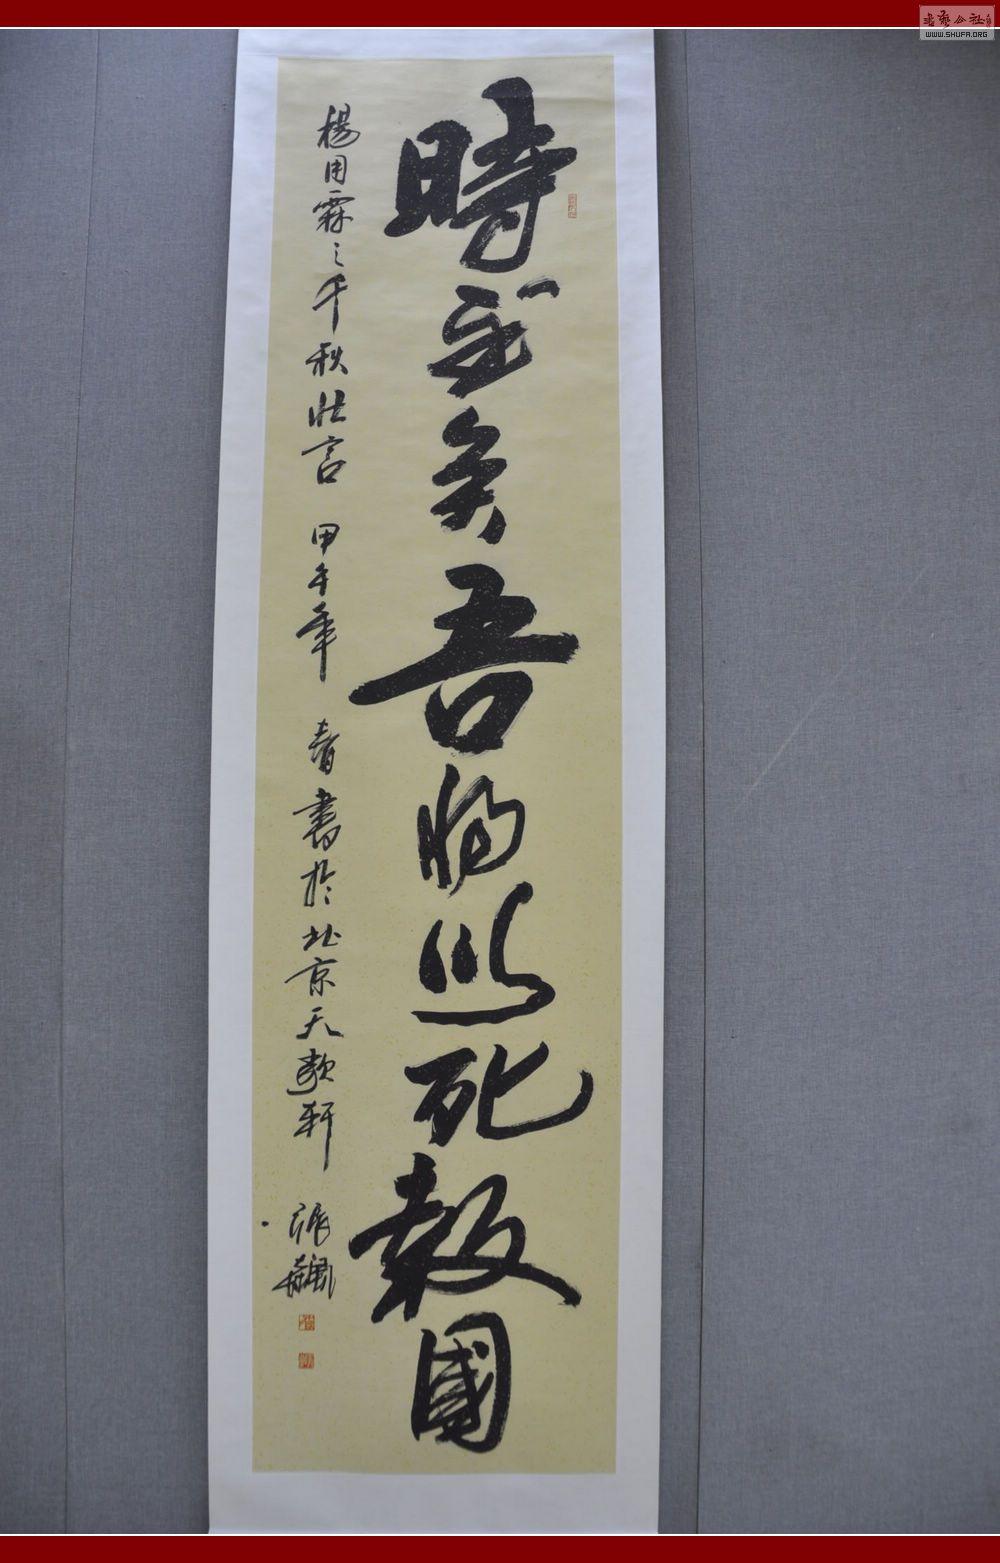 時至矣吾將以死報國
楊用霖之千秋壯言 甲午年 春書於北京天敖軒 張飆
WWW.SHUFA.ORG